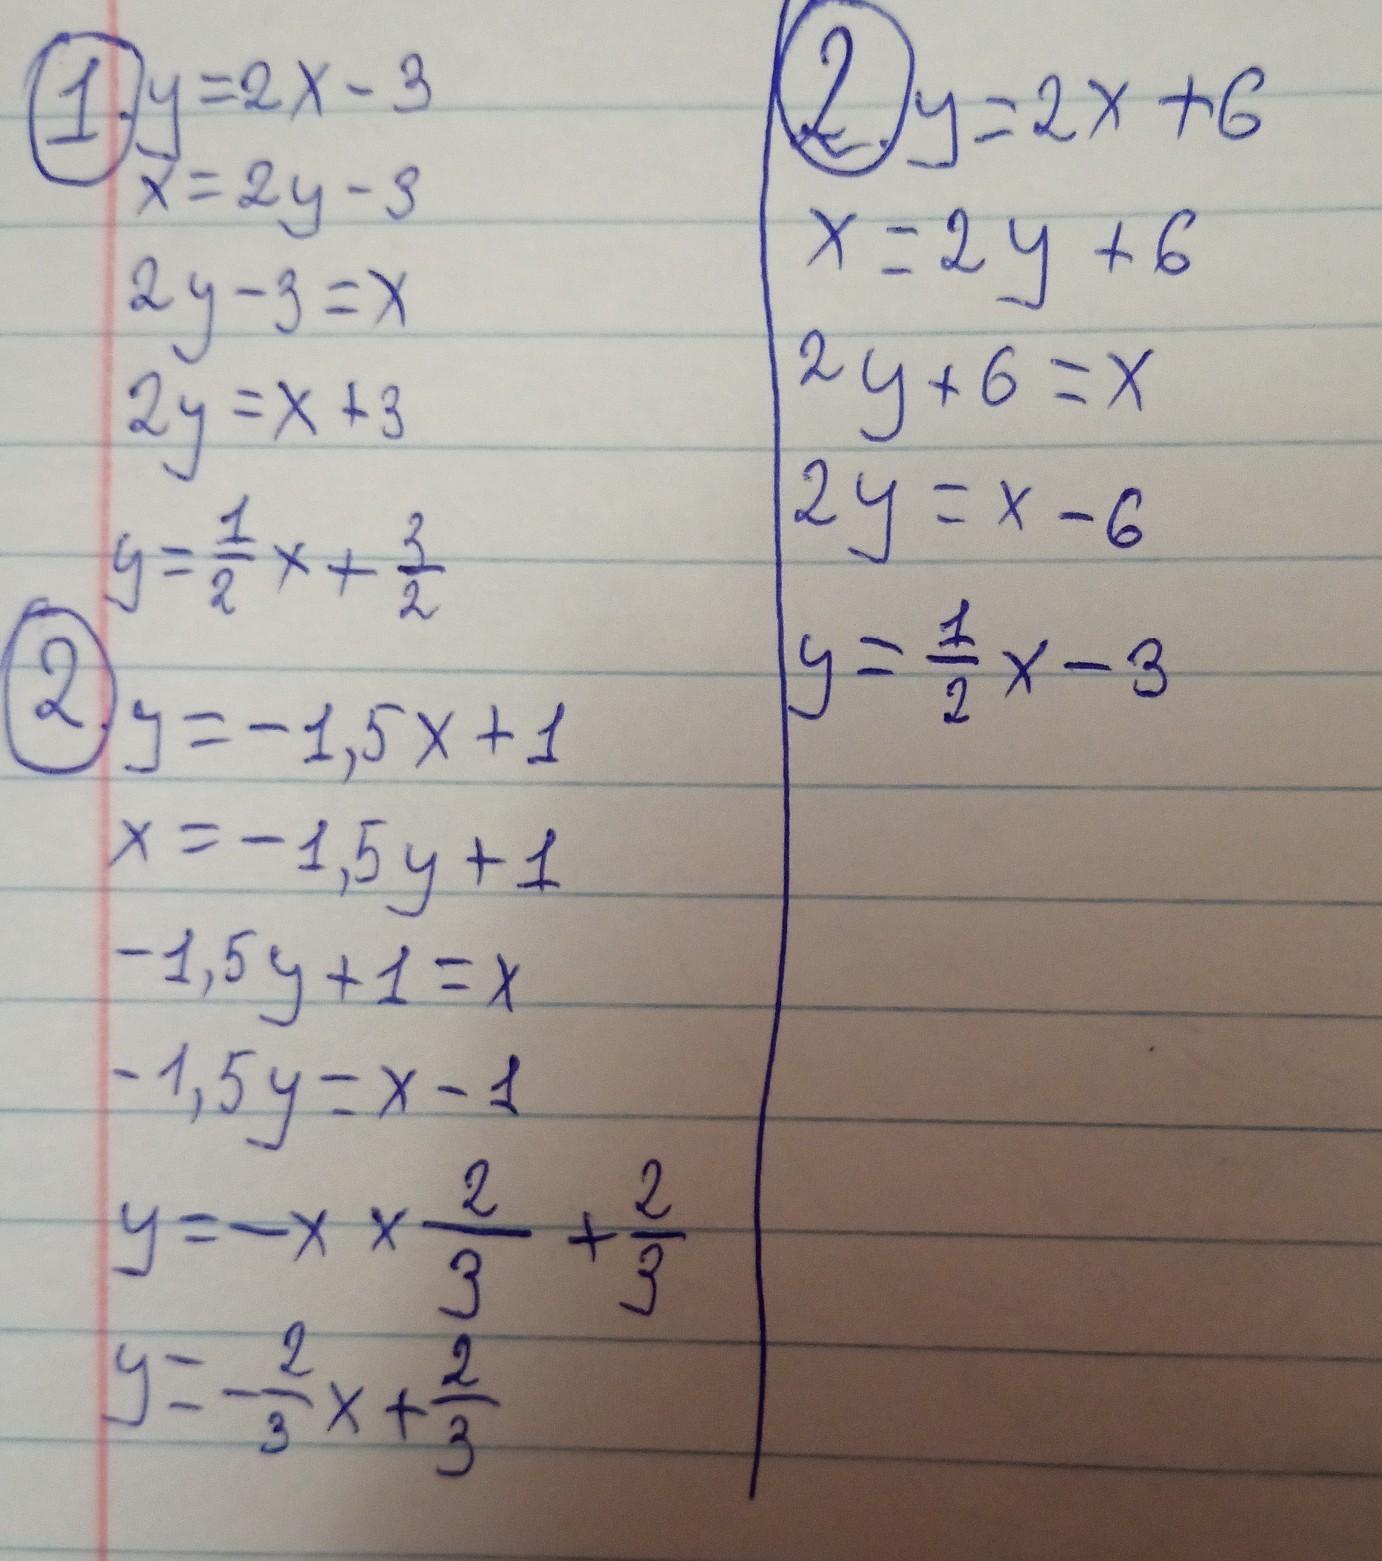 1. y=2x-3
x=2y-3
2y-3=x
2y=x+3
y=1/2x+3/2
2. y=-1,5x+1
x=-1,5y+1
-1,5y+1=x
-1,5y=x-1
y=-x×2/3+2/3
y=-2/3x+2/3
2. y=2x+6
x=2y+6
2y+6=x
2y=x-6
y=1/2x-3